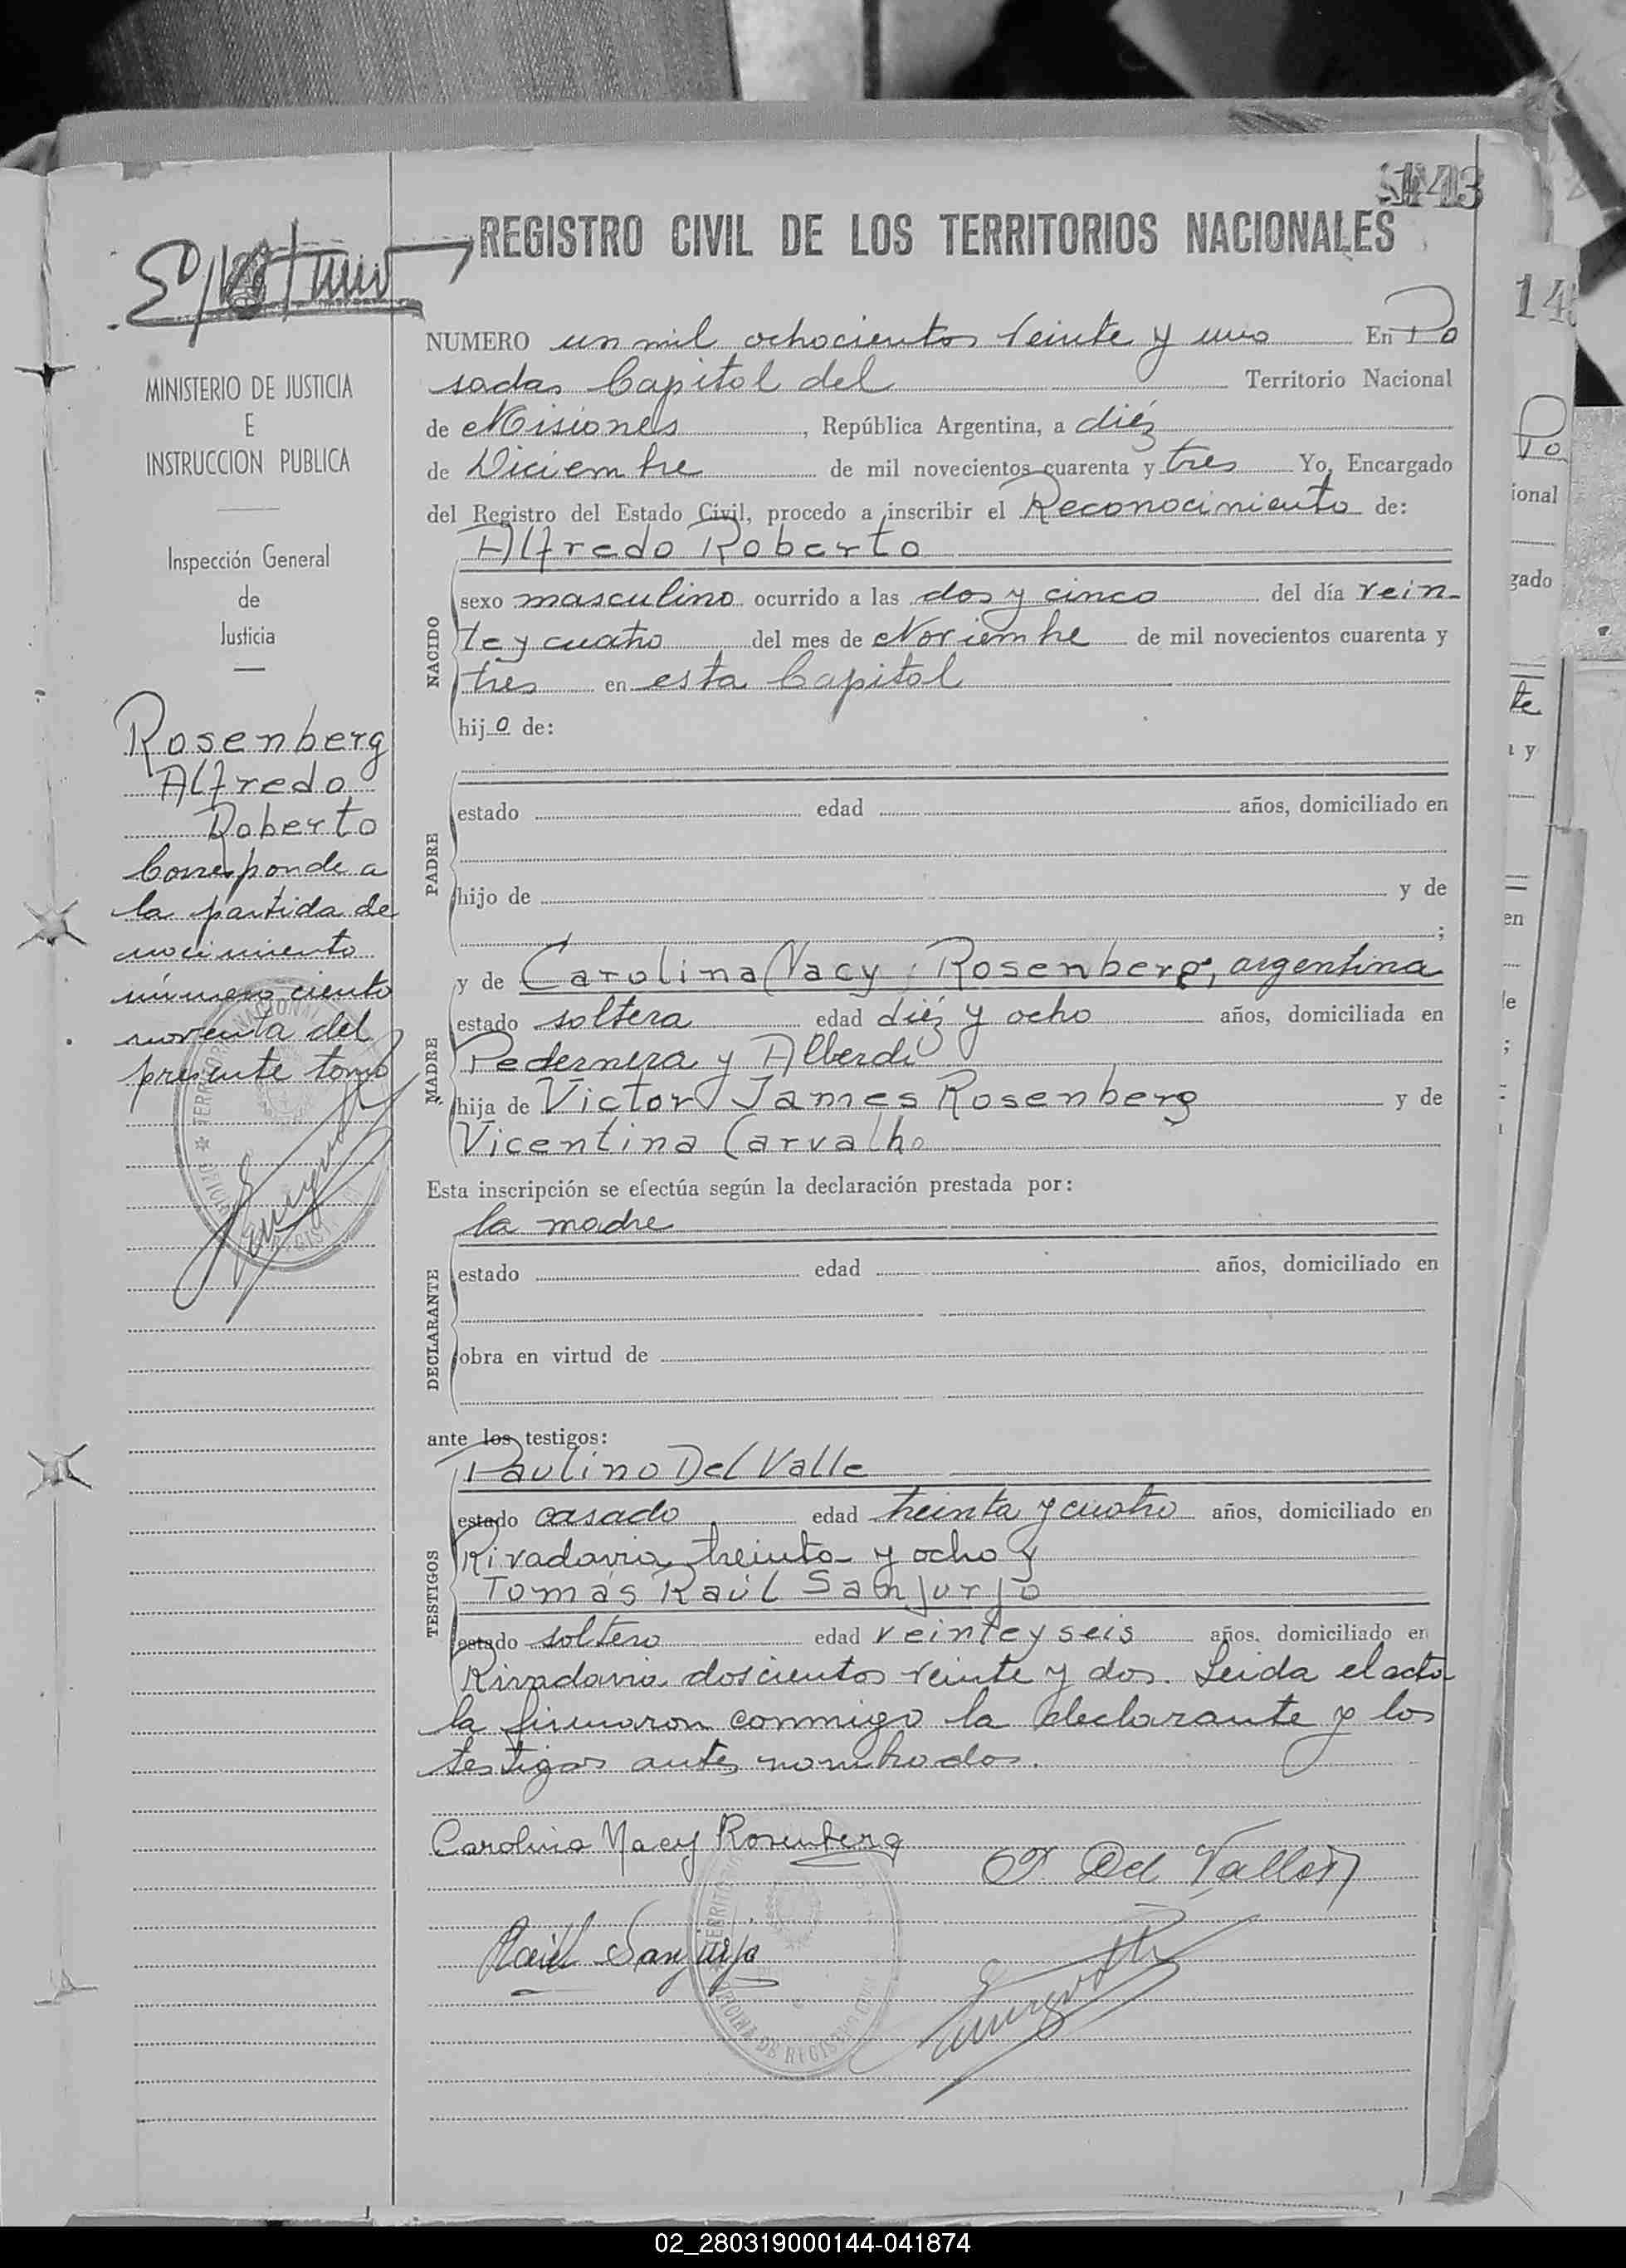 143
REGISTRO CIVIL DE LOS TERRITORIOS NACIONALES
MINISTERIO DE JUSTICIA
E
INSTRUCCION PUBLICA
Inspección General
de
Justicia
Rosenberg
Alfredo
Roberto
Corresponde a
la partida de
nacimiento
número ciento
noventa del
presente tomo
NUMERO un mil ochocientos veinte y uno En Po
sadas Capital del Territorio Nacional
de Misiones, República Argentina, a diéz
de Diciembre de mil novecientos cuarenta y tres Yo, Encargado
del Registro del Estado Civil, procedo a inscribir el Reconocimiento de:
Alfredo Roberto
NACIDO
sexo masculino ocurrido a las dos y cinco del día vein-
te y cuatro del mes de Noviembre de mil novecientos cuarenta y
tres en esta Capital
hijo de:
PADRE
estado edad años, domiciliado en
hijo de y de
;
y de Carolina Nacy Rosenberg, argentina
MADRE
estado soltera edad diéz y ocho años, domiciliada en
Pedernera y Alberdi
hija de Victor James Rosenberg y de
Vicentina Carvalho
Esta inscripción se efectúa según la declaración prestada por:
la madre
DECLARANTE
estado edad años, domiciliado en
obra en virtud de
ante los testigos:
Paulino Del Valle
TESTIGOS
estado casado edad treinta y cuatro años, domiciliado en
Rivadavia treinta y ocho y
Tomás Raúl Sanjurjo
estado soltero edad veinte y seis años, domiciliado en
Rivadavia doscientos veinte y dos. Leida el acta
la firmaron conmigo la declarante y los
testigos antes nombrados.
Carolina Nacy Rosenberg
P. Del Valle
Raúl Sanjurjo
OFICINA DE REGISTRO CIVIL
14
Po
ional
gado
te
a y
en
de
;
02_280319000144-041874